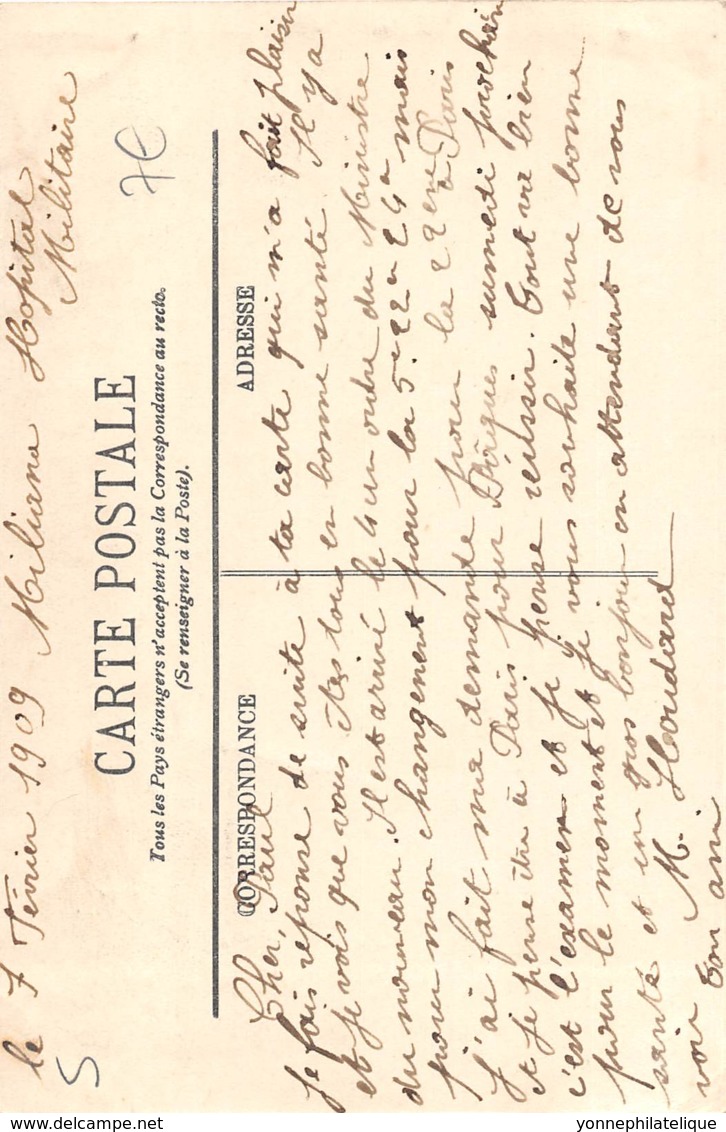 le 7 Février 1909 Miliana Hopital
Militaire
CARTE POSTALE
Tous les Pays étrangers n'acceptent pas la Correspondance au recto.
(Se renseigner à la Poste).
7€
S
CORRESPONDANCE
ADRESSE
Cher, Paul
Je fais reponse de suite à ta carte qui m'a fait plaisir
et je vois que vous êtes tous en bonne santé. Il y a
du nouveau. Il est arrivé le 4 un ordre du Ministre
pour mon changement pour la 5e 22e 24e mais
j'ai fait ma demande pour la 22e à Paris
et je pense être à Paris pour Pâques samedi prochain
c'est l'examen et je pense réussir. Tout va bien
pour le moment et je vous souhaite une bonne
santé et un gros bonjour en attendant de vous
voir Ton ami
M. Houdard
yonnephilatelique